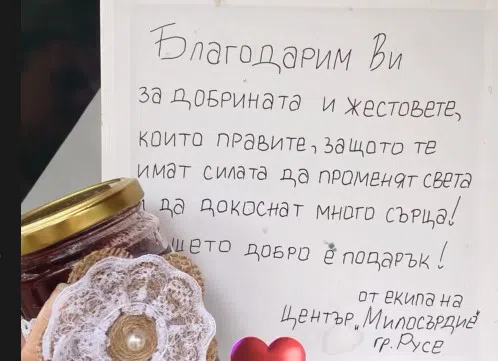 Благодарим Ви
за добрината и жестовете,
които правите, защото те
имат силата да променят света
да докоснат много сърца!
добро е подарък!
от екипа на
Център „Милосърдие"
гр. Русе